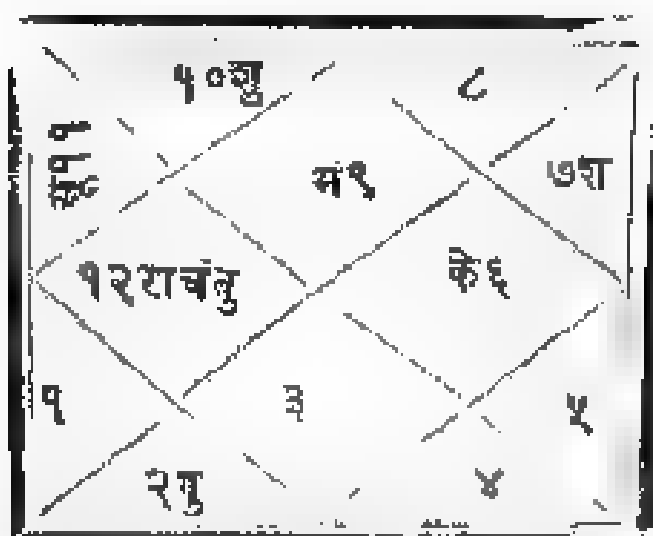 १०शु
८
सू११
मं९
७श
१२राचंबु
के६
१
३
५
४